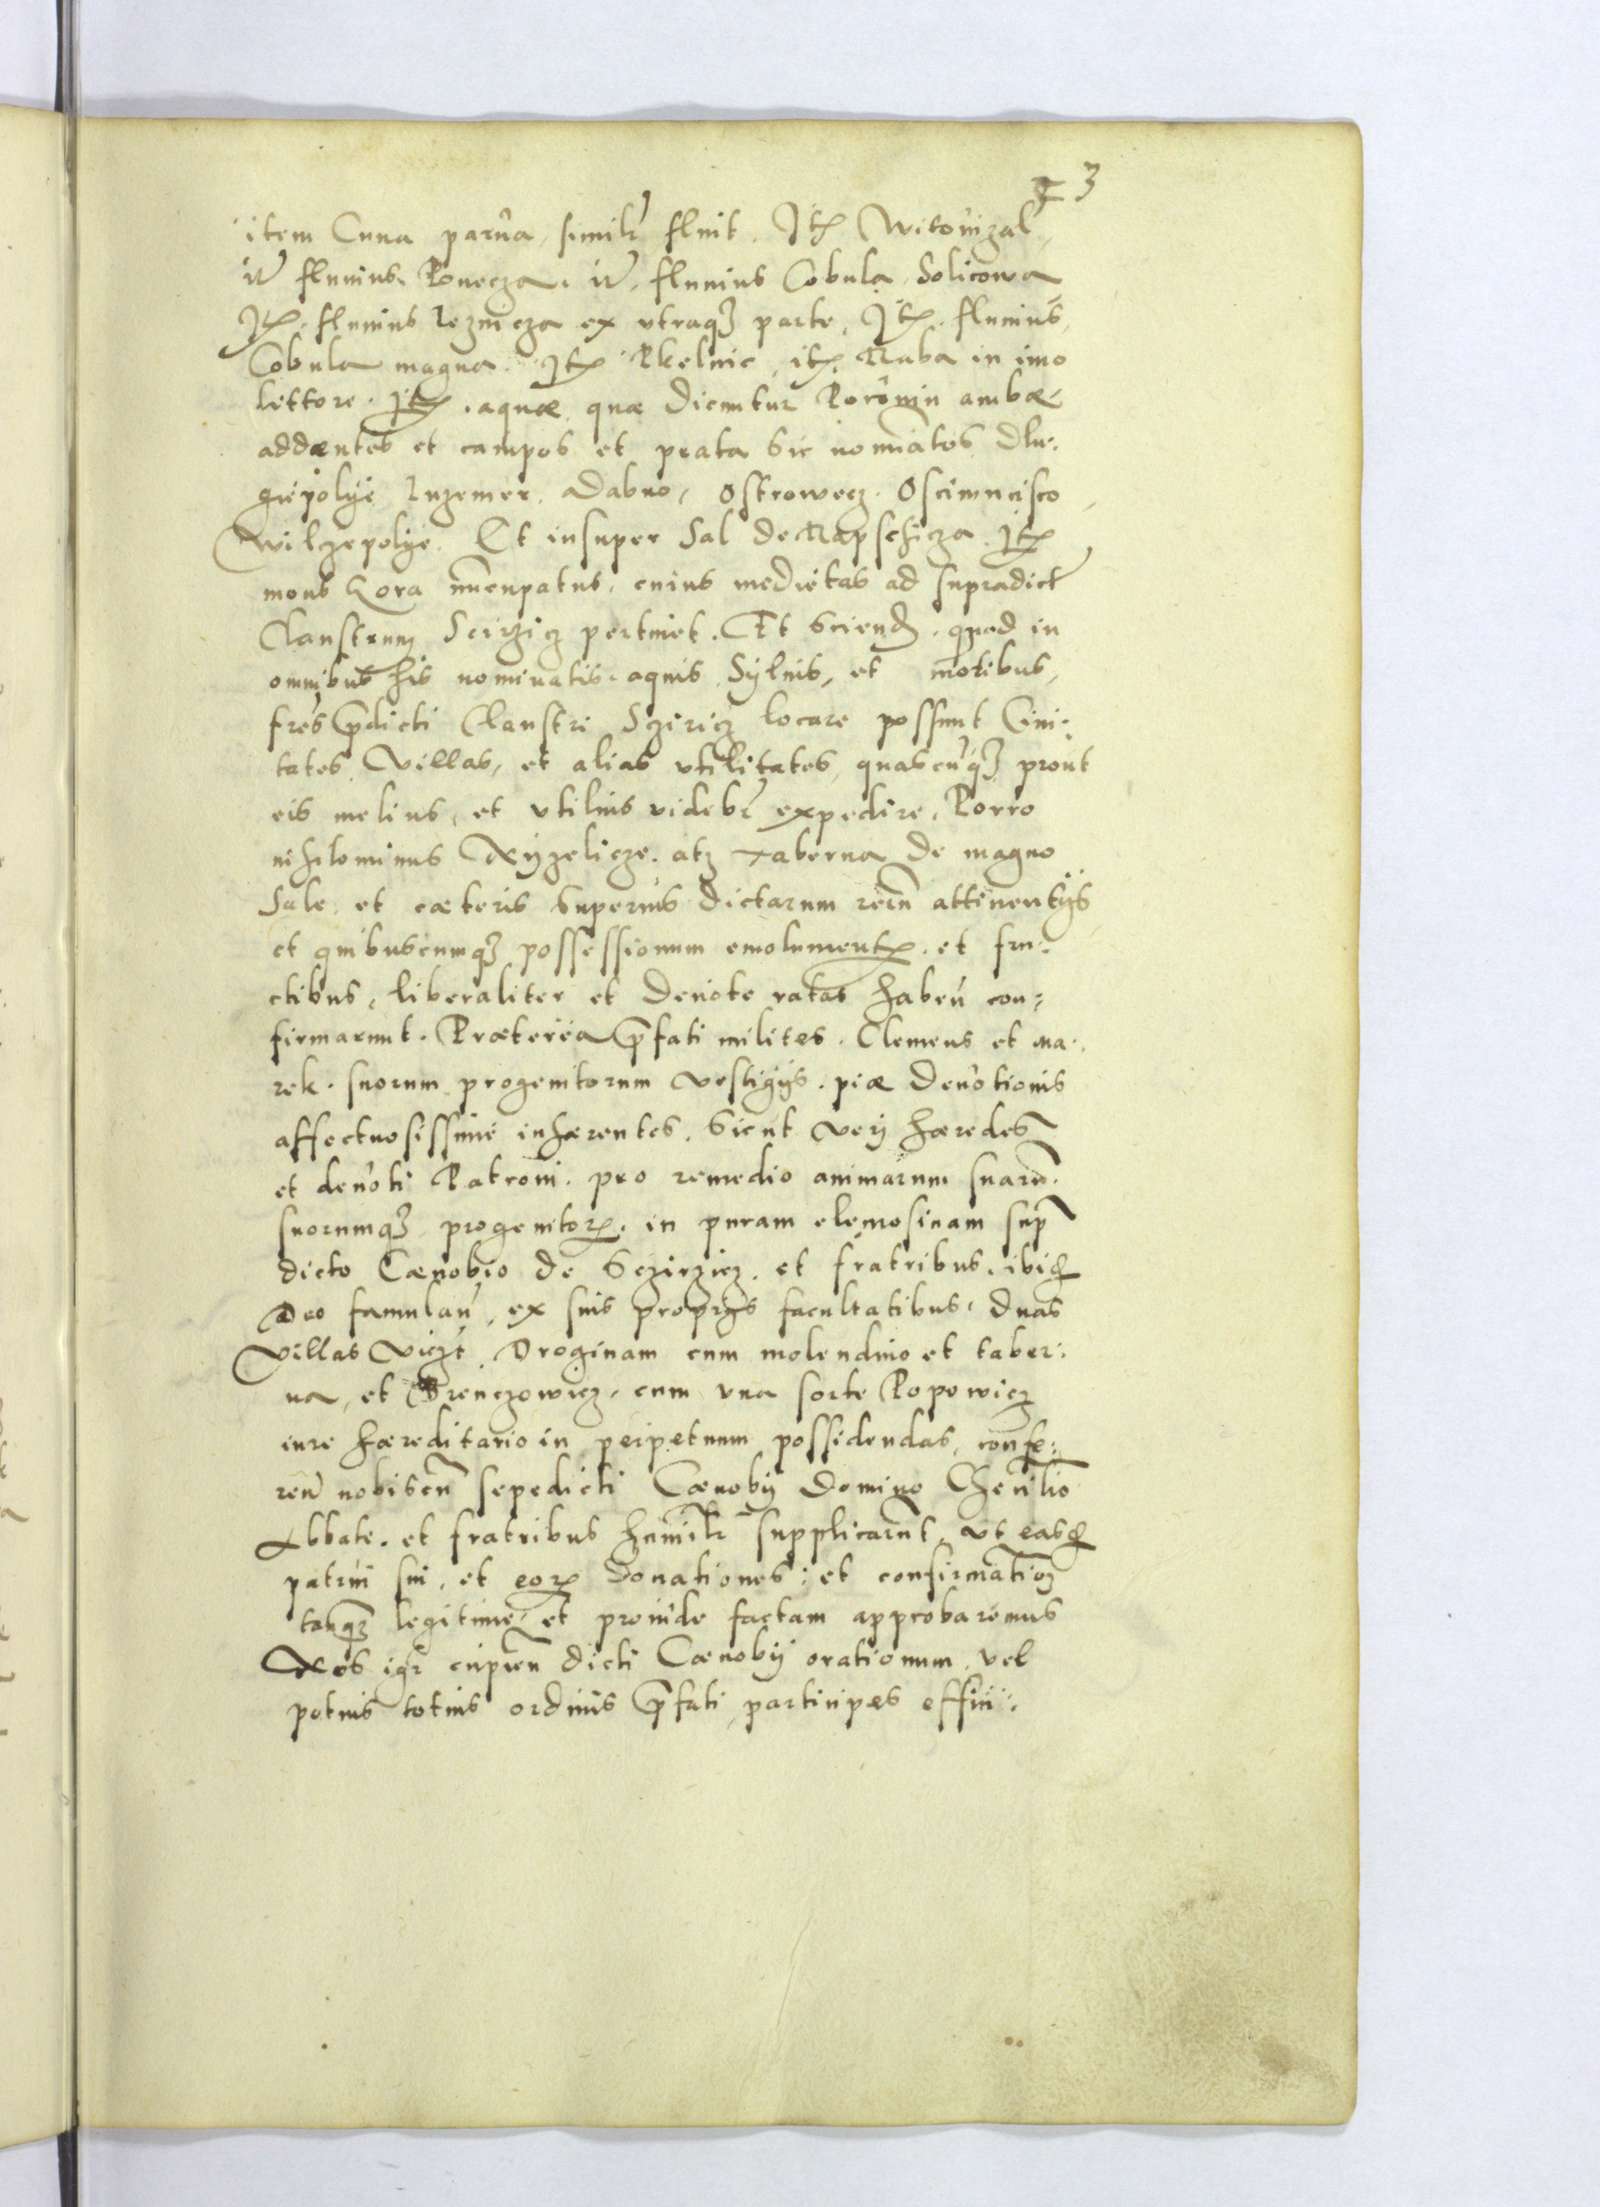 3
item Cuna parua similr fluit. Itẽ Witouizal
itẽ fluuius Ronecza. itẽ fluuius Cobula Solicowa
Itẽ. fluuius Leznicza ex vtraq3 parte, Itẽ. fluuius
Cobula magna. Itẽ Rkelnic, itẽ Ruba in imo
littore. Itẽ. aquæ quæ dicuntur Poronin ambæ
addentes et campos et prata sic nomiatos Dlu:
giepolye Luzemer. Dabno, Ostrowecz. Osciuncisco
Wilzepolye. Et insuper Sal de Rapschicza. Itẽ
mons Lora nūcupatus. cuius medietas ad supradictũ
Claustrum Scirzicz pertinet. Et sciend, quod in
omnibus his nominatis aquis Syluis, et mōtibus,
frēs p̄dicti Claustri Scziricz locare possunt Ciui:
tates Villas, et alias vtilitates, quascūq3 prout
eis melius, et vtilius videbr̃ expedire, Porro
nihilominus Xyzelicze. atq3 taberna de magno
Sale et cæteris superius dictarum rerū attinentijs
et quibuscumq3 possessionum emolumentẽ. et fru:
ctibus, liberaliter et deuote ratas haben̄ con:
firmarunt. Præterea p̄fati milites. Clemens et Ma:
rek. suorum progenitorum vestigijs. piæ deuotionis
affectuosissime inhærentes. sicut veri hæredes
et deuoti Patroni. pro remedio animarum suarū.
suorumq3 progenitorẽ. in puram elemosinam supra
dicto Cænobio de Sczirzicz. et fratribus. ibid
Deo famulañ, ex suis proprijs facultatibus. duas
Villas Viczt. Droginam cum molendino et taber:
na, et Grenczowicz. cum vna sorte Popowicz
iure hæreditario in perpetuum possidendas, confe:
ren̄ nobiscū sepedicti Cænobij Domino Theōilio
Abbate. et fratribus humilr supplicarūt, vt easd
patrui sui, et eorẽ donationes: et confirmatioē
tanq3 legitime et proinde factam approbaremus
Nos igr̃ cupien̄ dicti Cænobij orationum vel
potius totius ordinis p̄fati, participes effici: